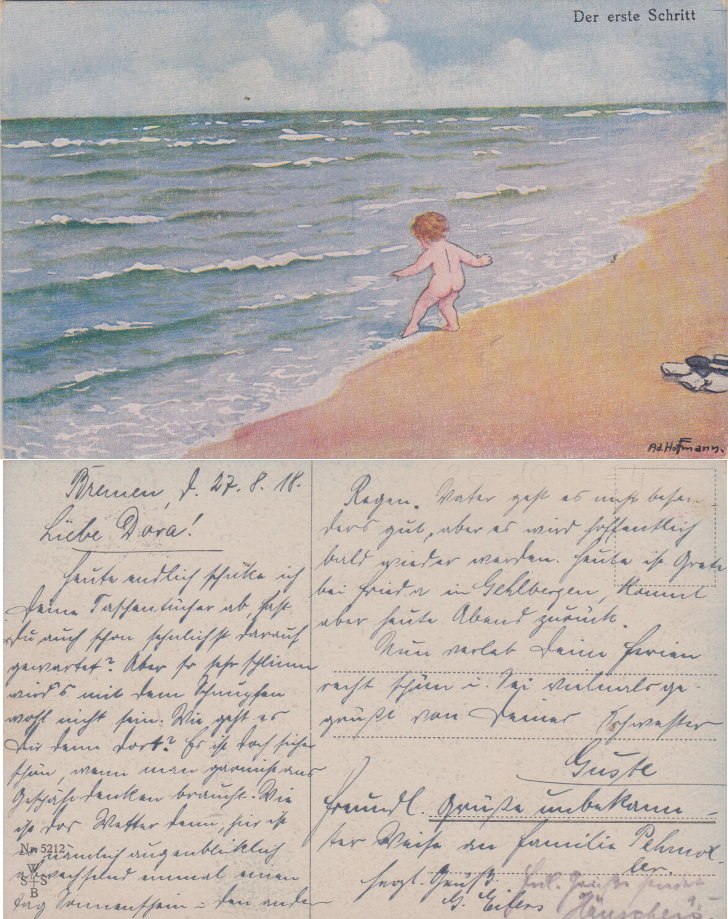 Der erste Schritt
Ad. Hofmann.
Bremen, d. 27. 8. 18.
Liebe Dora!
Heute endlich schicke ich
Deine Taschentücher ab, hast
Du auch schon sehnlichst darauf
gewartet? Aber so sehr schlimm
wird's mit dem Schnupfen
wohl nicht sein. Wie geht es
Dir denn dort? Es ist doch sicher
schön, wenn man garnicht ans
Geschäft denken braucht. Wie
ist das Wetter denn, hier ist
Nr. 5212
nämlich augenblicklich
abwechselnd einmal einen
W
S S
B
Tag Sonnenschein u. den andern
Regen. Vater geht es nicht beson-
ders gut, aber es wird hoffentlich
bald wieder werden. Heute ist Grete
bei Frieda in Gehlbergen, kommt
aber heute Abend zurück.
Nun verleb Deine Ferien
recht schön u. sei vielmals ge-
grüßt von Deiner Schwester
Gustl
Freundl. Grüße unbekann-
ter Weise an Familie
herzl. Grüße
G. Eilers